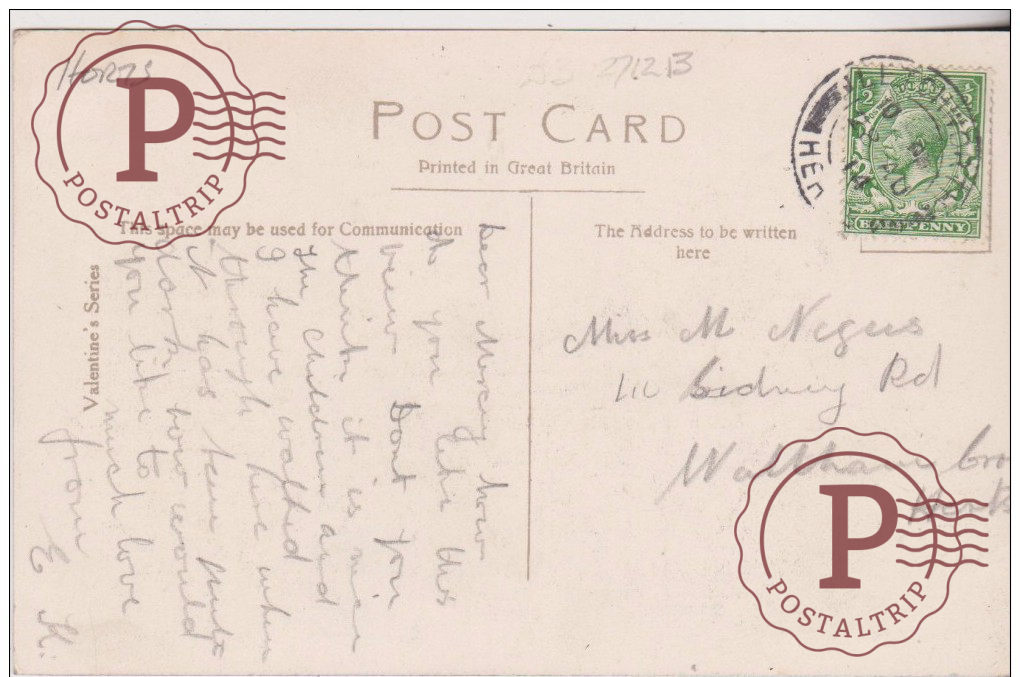 HORTS
27/12 B
POST CARD
Printed in Great Britain
This space may be used for Communication
The Address to be written
here
Valentine's Series
Dear Mercy how
do you like this
view Dont you
think it is nice
The children and
I have walked
through here when
it has been quite
dark how would
you like to
much love
from
E K.
Miss M Negus
Sidney Rd
Waltham Cro
Herts
HALFPENNY
14
P
POSTALTRIP
P
POSTALTRIP